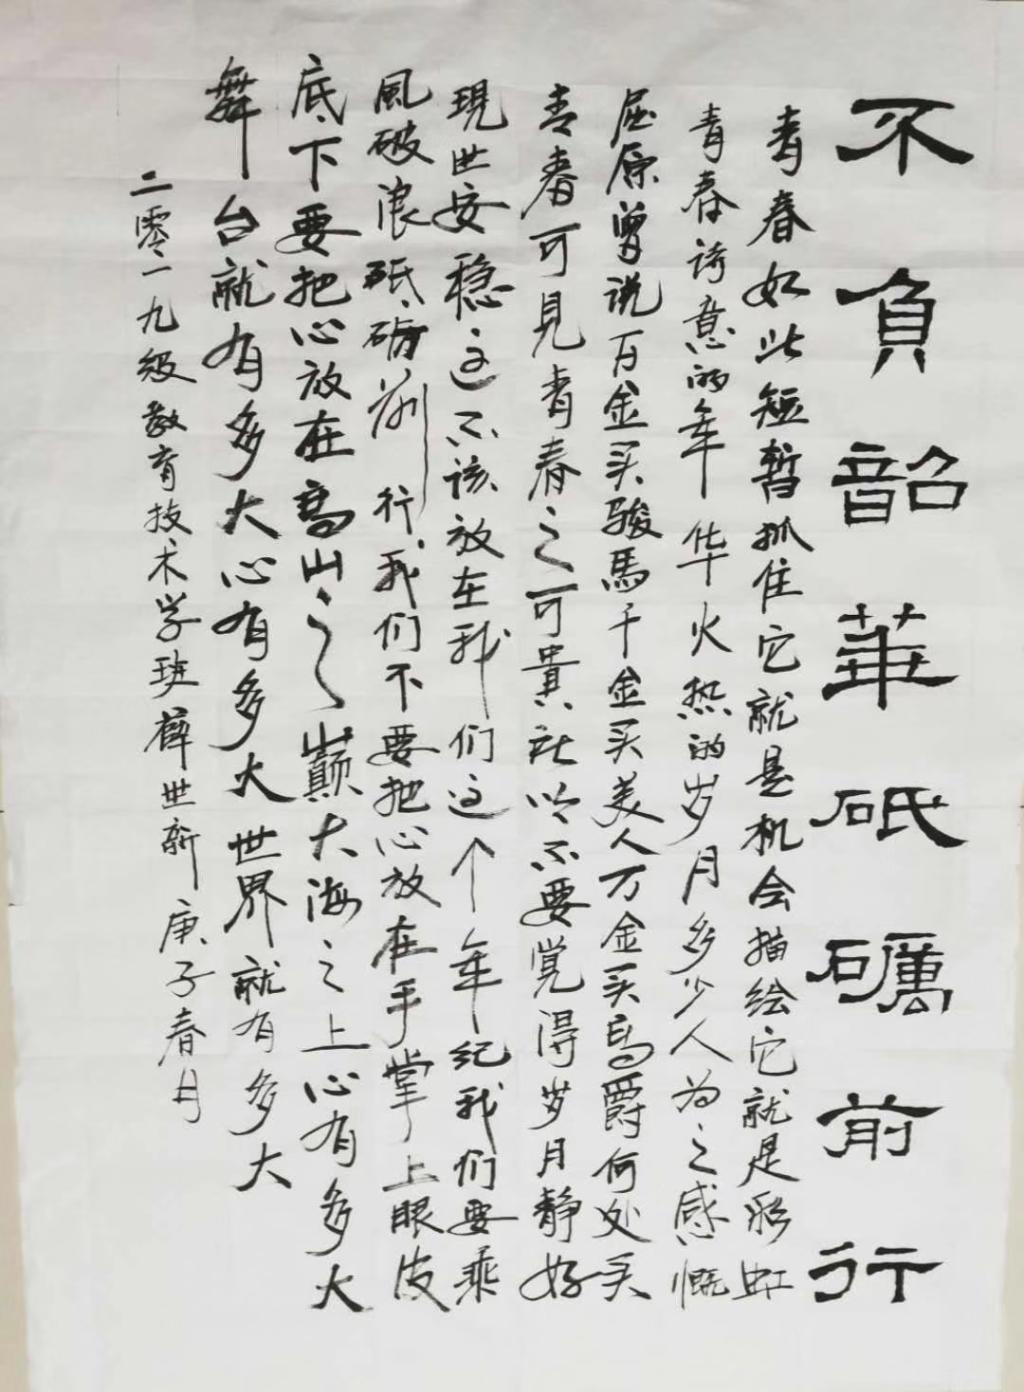 不负韶華砥礪前行
青春如此短暂抓住它就是机会描绘它就是彩虹
青春诗意的年华火热的岁月多少人为之感慨
屈原曾说百金买骏馬千金买美人万金买高爵何处买
青春可見青春之可貴所以不要觉得岁月静好
現世安稳这不该放在我们这个年纪我们要乘
風破浪砥砺前行我们不要把心放在手掌上眼皮
底下要把心放在高山之巅大海之上心有多大
舞台就有多大心有多大世界就有多大
二零一九级教育技术学班薛世新 庚子春月